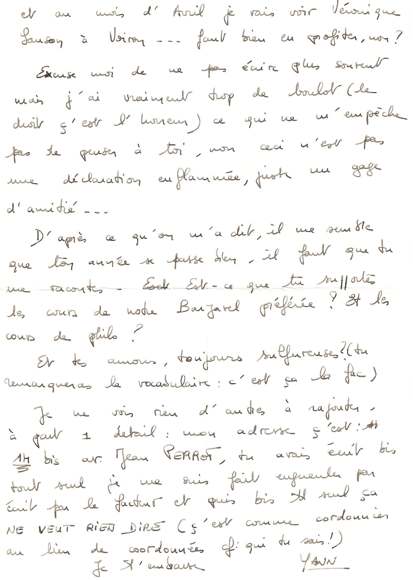 et au mois d'Avril je vais voir Véronique
Sanson à Voiron --- faut bien en profiter, non?
Excuse moi de ne pas écrire plus souvent
mais j'ai vraiment trop de boulot (le
droit ç'est l'horreur) ce qui ne m'empêche
pas de penser à toi, non ceci n'est pas
une déclaration enflammée, juste un gage
d'amitié ---
D'après ce qu'on m'a dit, il me semble
que ton année se passe bien, il faut que tu
me racontes - Est-ce que tu supportes
les cours de notre Barjavel préférée? Et les
cours de philo?
Et tes amours, toujours sulfureuses? (tu
remarqueras le vocabulaire: c'est ça la fac)
Je ne vois rien d'autres à rajouter,
à part 1 detail: mon adresse ç'est:
14 bis av. Jean PERROT, tu avais écrit bis
tout seul je me suis fait engueuler par
écrit par le facteur et puis bis tt seul ça
NE VEUT RIEN DIRE (ç'est comme cordonnées
au lieu de coordonnées qui tu sais!)
Je t'embrasse YANN